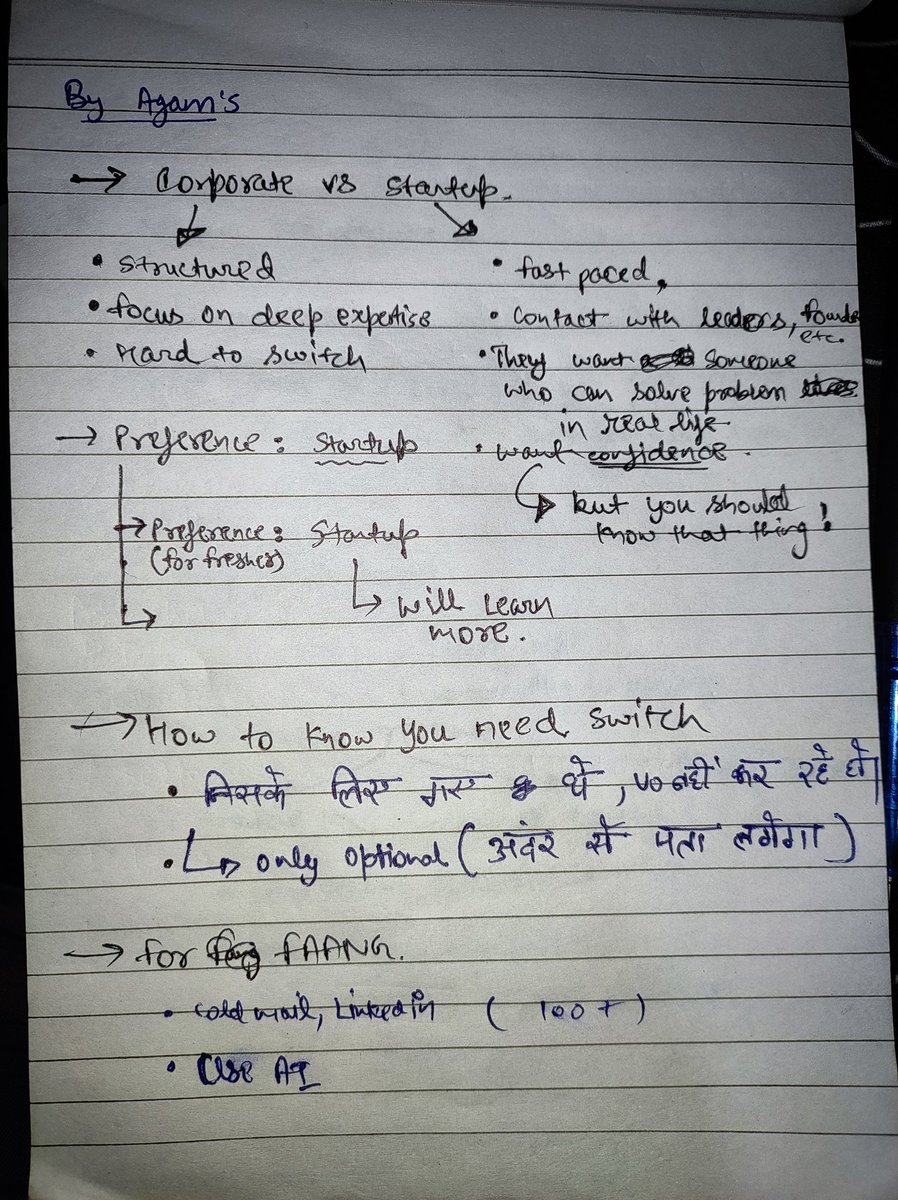 By Agam's
→ Corporate vs startup.
• structured
• focus on deep expertise
• Hard to switch
• fast paced,
• Contact with leaders, founde
etc.
• They want someone
who can solve problem
in real life
• want confidence.
↳ but you should
know that thing!
→ Preference: Startup
→ Preference: Startup
(for fresher)
↳ will learn
more.
→ How to know you need switch
• जिसके लिए गए थे, वो नहीं कर रहे हो।
• ↳ only optional (अंदर से पता लगेगा)
→ for FAANG.
• cold mail, LinkedIn (100+)
• Use AI